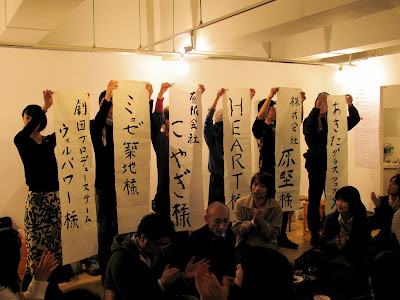 劇団プロデュースチーム
ウィルパワー様
ミュゼ築地様
有限会社
こやぎ様
HEART様
株式会社
原堅様
おきたプラスフェス